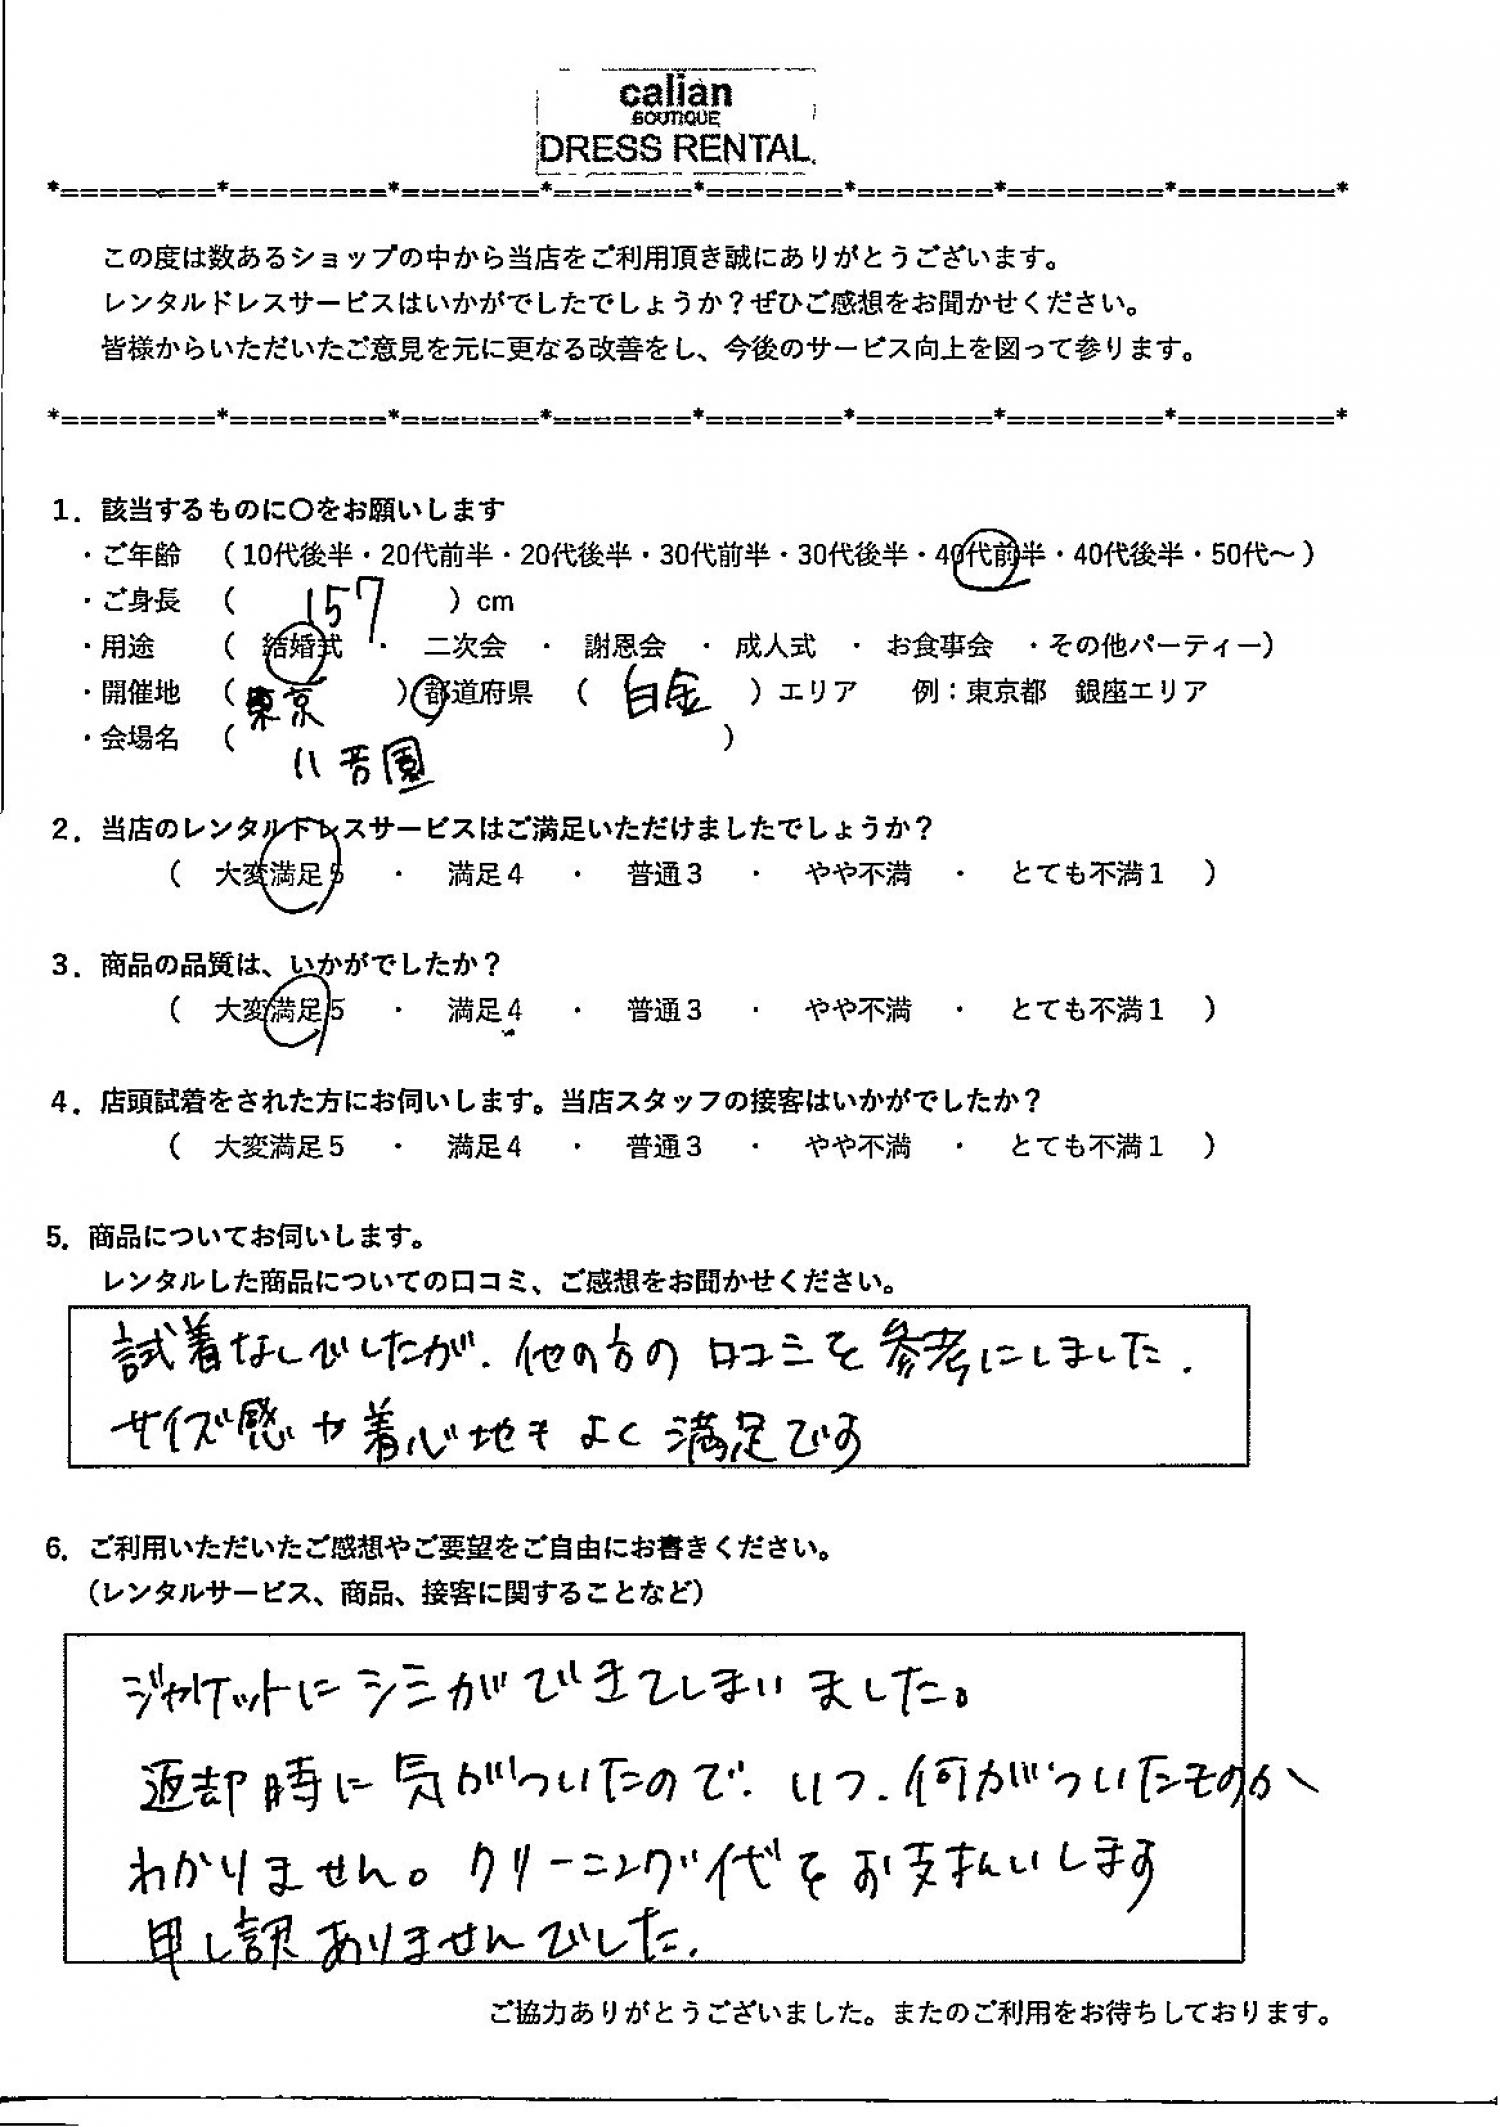 calian
BOUTIQUE
DRESS RENTAL
*========*========*=======*=======*=======*=======*========*========*
この度は数あるショップの中から当店をご利用頂き誠にありがとうございます。
レンタルドレスサービスはいかがでしたでしょうか？ぜひご感想をお聞かせください。
皆様からいただいたご意見を元に更なる改善をし、今後のサービス向上を図って参ります。
*========*========*=======*=======*=======*=======*========*========*
1．該当するものに〇をお願いします
・ご年齢 （10代後半・20代前半・20代後半・30代前半・30代後半・40代前半・40代後半・50代～）
・ご身長 （ 157 ）cm
・用途 （ 結婚式 ・ 二次会 ・ 謝恩会 ・ 成人式 ・ お食事会 ・その他パーティー）
・開催地 （東京 ）都道府県 （ 白金 ）エリア 例：東京都 銀座エリア
・会場名 （ 八芳園 ）
2．当店のレンタルドレスサービスはご満足いただけましたでしょうか？
（ 大変満足5 ・ 満足4 ・ 普通3 ・ やや不満 ・ とても不満1 ）
3．商品の品質は、いかがでしたか？
（ 大変満足5 ・ 満足4 ・ 普通3 ・ やや不満 ・ とても不満1 ）
4．店頭試着をされた方にお伺いします。当店スタッフの接客はいかがでしたか？
（ 大変満足5 ・ 満足4 ・ 普通3 ・ やや不満 ・ とても不満1 ）
5．商品についてお伺いします。
レンタルした商品についての口コミ、ご感想をお聞かせください。
試着なしでしたが、他の方の口コミを参考にしました.
サイズ感や着心地もよく満足です
6．ご利用いただいたご感想やご要望をご自由にお書きください。
（レンタルサービス、商品、接客に関することなど）
ジャケットにシミができてしまいました。
返却時に気がついたので、いつ、何がついたものか
わかりません。クリーニング代をお支払いします
申し訳ありませんでした.
ご協力ありがとうございました。またのご利用をお待ちしております。